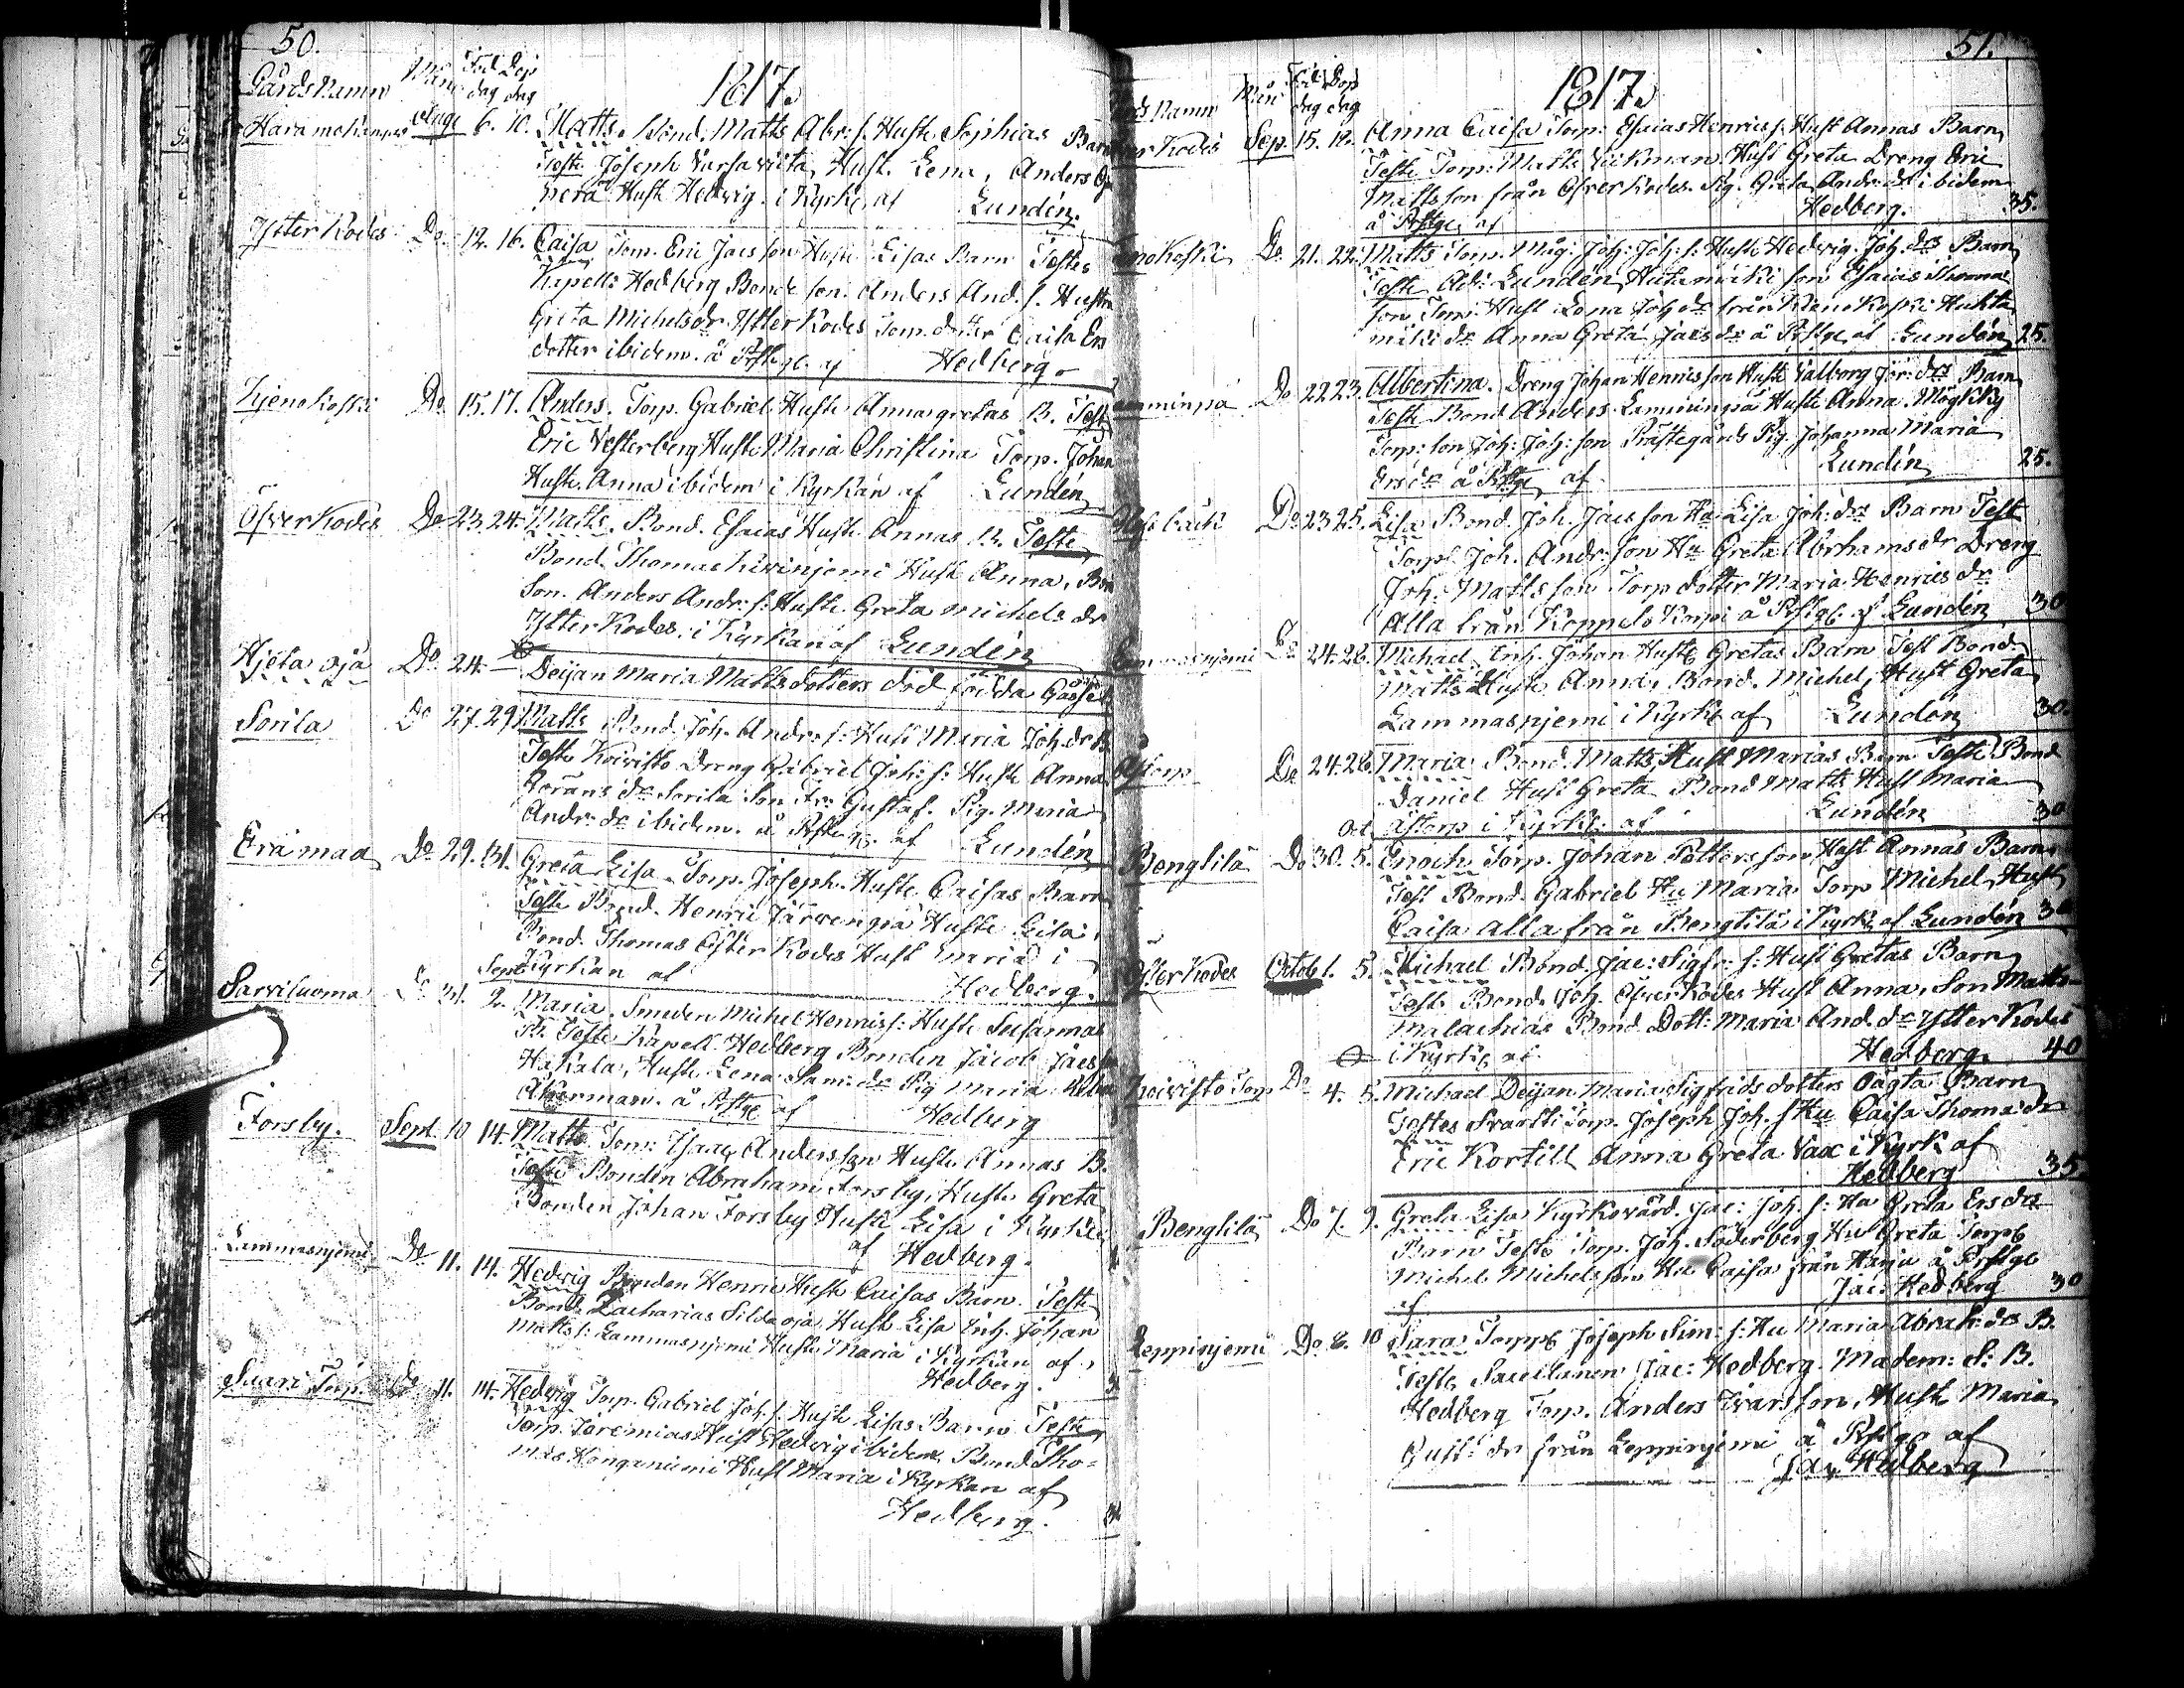 50.
Gårds Namn Mån Föd dag Döp dag 1817.
Augs 6. 10. Matts. Bond. Matts Abr: s. Hustr Sophias Barn
Teste Joseph Hustr. Lena, Anders
Hustr Hedvig. i Kyrk. af Lundén.
Ytter Kodes Do 12. 16. Caisa Torp. Eric Jacs son Hustr Lisas Barn Testes
Kapell: Hedberg Bonde son. Anders And. s. Hustru
Greta Michelsdr Ytter Kodes Torp. dotter Caisa Ers
dotter ibidem. å Prstge. af Hedberg
Kjenokoski Do 15. 17. Anders. Torp. Gabriel Hustr Annagretas B. Test
Eric Vesterberg Hustr Maria Christina Torp. Johan
Hustr. Anna ibidem i Kyrkan af Lundén
Öfver Kodes Do 23. 24. Matts. Bond. Esaias Hustr Annas B. Teste
Bond. Thomas Hustr Anna, Bon
Son. Anders Andr. s. Hustr. Greta Michels dr
Ytter Kodes. i Kyrkan af Lundén
Hjeta oja Do 24. Deijan Maria Matts dotters död födda
Sorila Do 27. 29. Matts Bond. Joh. Andr. s: Hustr Maria Joh. dr B.
Teste Koivisto Dreng Gabriel Joh: s: Hustr Anna
Görans dr Sorila Son Gustaf. Pig. Maria
Andr. dr ibidem. å Prstge. af Lundén
Erämaa Do 29. 31. Greta Lisa Torp. Joseph Hustr. Caisas Barn
Teste Bond. Henric Järwenpä Hustr Lisa
Bond. Thomas Öfver Kodes Hust Maria i
Kyrkan af Hedberg.
Sarviluoma Do 31. Sept 2. Maria. Smeden Michel Henriss: Hustr Susannas
B. Teste Kapell. Hedberg Bonden Jacob Jacs
Hakala, Hustr Lena Sam: dr Pig Maria
Åkerman. å Prstge af Hedberg
Forsby. Sept. 10 14. Matts Torp: Isaac Andersson Hustr Annas B.
Teste Bonden Abraham Forsby, Hustr Greta
Bonden Johan Forsby Hustr Lisa i Kyrkan
af Hedberg.
Lammasnjemi Do 11. 14. Hedvig Bonden Henric Hustr Caisas Barn. Teste
Bond. Zacharias Sildaoja Hustr Lisa Inh. Johan
Matts s: Lammasnjemi Hustr Maria i Kyrkan af
Hedberg.
Suari Torp. Do 11. 14. Hedvig Torp. Gabriel Joh. s. Hustr Lisas Barn Teste
Torp. Jeremias Hust Hedvig ibidem Bond. Tho-
mas Honganiemi Hust Maria i Kyrkan af
Hedberg.
51.
Namn Mån Föd dag Döp dag 1817.
Kodes Sep. 15. 18. Anna Caisa Torp. Esaias Henrics s. Hust Annas Barn
Teste Torp: Matts Vickman Hust Greta Dreng Eric
Mattsson från Öfver Kodes. Pig. Greta Andr: dr ibidem
å Prstge af Hedberg. 35.
Do 21. 22. Matts Torp. Måg: Joh: Joh: s: Hustr Hedvig Joh. drs Barn
Teste Adj: Lundén, Huhtamäki son Esaias Thomas
son Torp: Hust Lena Joh dr från Kienokoski Huhta
mäki dr Anna Greta Jacs dr å Prstge af Lundén 25.
Do 22 23. Albertina. Dreng Johan Henrics son Hustr Valborg Jör: drs Barn
Teste Bond Anders Lamminpä Hustr Anna
Torp: son Joh: Joh: son Prästegårds Pig. Johanna Maria
Ers dr å Prstge af Lundén 25.
Do 23 25. Lisa Bond. Joh. Jacs son Hu Lisa Joh: drs Barn Test
Torp: Joh. Andr. son Hu Greta Abrhams dr Dreng
Joh. Matts son Torp dotter Maria Henrics dr
Alla från Koppelo Korpi å Prstge. af Lundén 30
Lammasnjemi Do 24. 26. Michael Inh. Johan Hustr Gretas Barn Test Bond.
Matts Hustr Anna, Bond. Michel, Hust Greta
Lammasnjemi i Kyrk af Lundén 30.
Åstorp Do 24. 26. Maria Bond. Matts Hust Marias Barn Teste Bond
Daniel Hust Greta Bond Matts Hust Maria
Åstorp i Kyrk. af Lundén 30
Bengtilä Do 30. Oct. 5. Enoch Torp. Johan Petters son Hust Annas Barn
Test Bond. Gabriel Hu Maria Torp Michel Hust
Caisa alla från Bengtilä i Kyrk af Lundén 30
Ytter Kodes Octob 1. 5. Michael Bond. Jac: Sigfr: s: Hust Gretas Barn
Teste Bond. Joh. Öfver Kodes Hust Anna, Son Matts
Malachias Bond. Dott: Maria And. dr Ytter Kodes
i Kyrk af Hedberg. 40
Koivisto Torp Do 4. 5. Michael Deijan Maria Sigfrids dotters Oägta Barn
Testes Torp. Joseph Joh. s Hu Caisa Thoms: dr
Eric Kortill Anna Greta Vax i Kyrk af
Hedberg 35
Bengtilä Do 7. 9. Greta Lisa Kyrkovärd. Jac: Joh. s: Hu Greta Ers drs
Barn Teste Torp. Joh. Söderberg Hu Greta Torp
Michel Michelsson Hu Caisa från Harju å Prstge
af Jac: Hedberg 30
Leppinjemi Do 8. 10 Sara Torp Joseph Sim: s: Hu Maria Abrah: drs B.
Teste Jac: Hedberg. Madem: S: B.
Hedberg Torp. Anders Ivarsson, Hustr Maria
Gust: dr från Leppinjemi å Prstge af
Jac. Hedberg